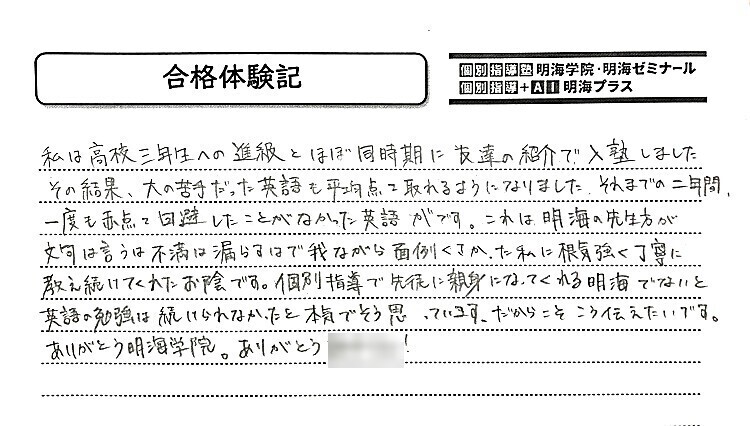 合格体験記
個別指導塾 明海学院・明海ゼミナール
個別指導+AI 明海プラス
私は高校三年生への進級とほぼ同時期に友達の紹介で入塾しました
その結果、大の苦手だった英語も平均点て取れるようになりました。それまでの二年間、
一度も赤点て回避したことがなかった英語がです。これは明海の先生方が
文句は言うは不満は漏らすはで我ながら面倒くさかった私に根気強く丁寧に
教え続けてくれたお陰です。個別指導で先徒に親身になってくれる明海でないと
英語の勉強は続けられなかったと本気でそう思っています。だからこそこう伝えたいです。
ありがとう明海学院。ありがとう
!